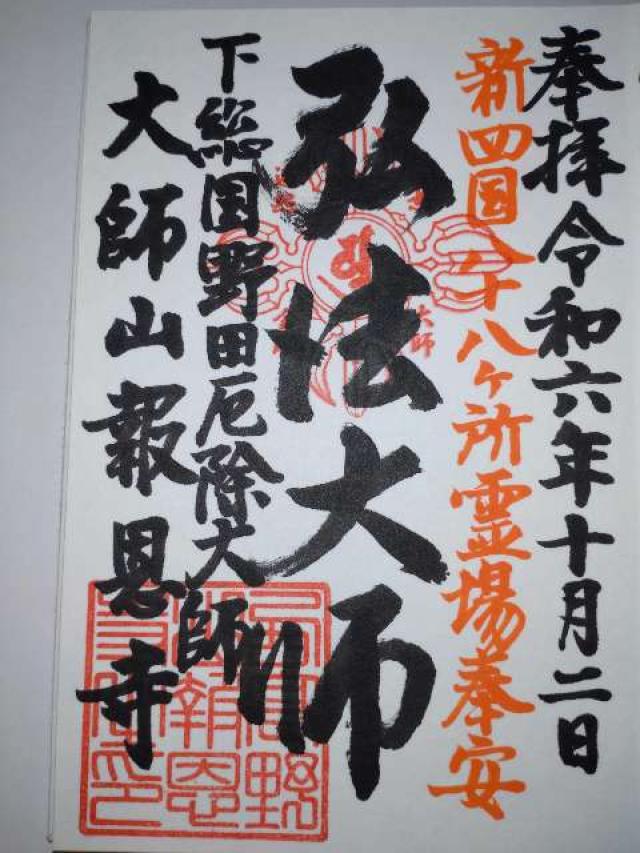 奉拝令和六年十月二日
新四国八十八ヶ所霊場奉安
弘法大師
下総国野田厄除大師
大師山報恩寺